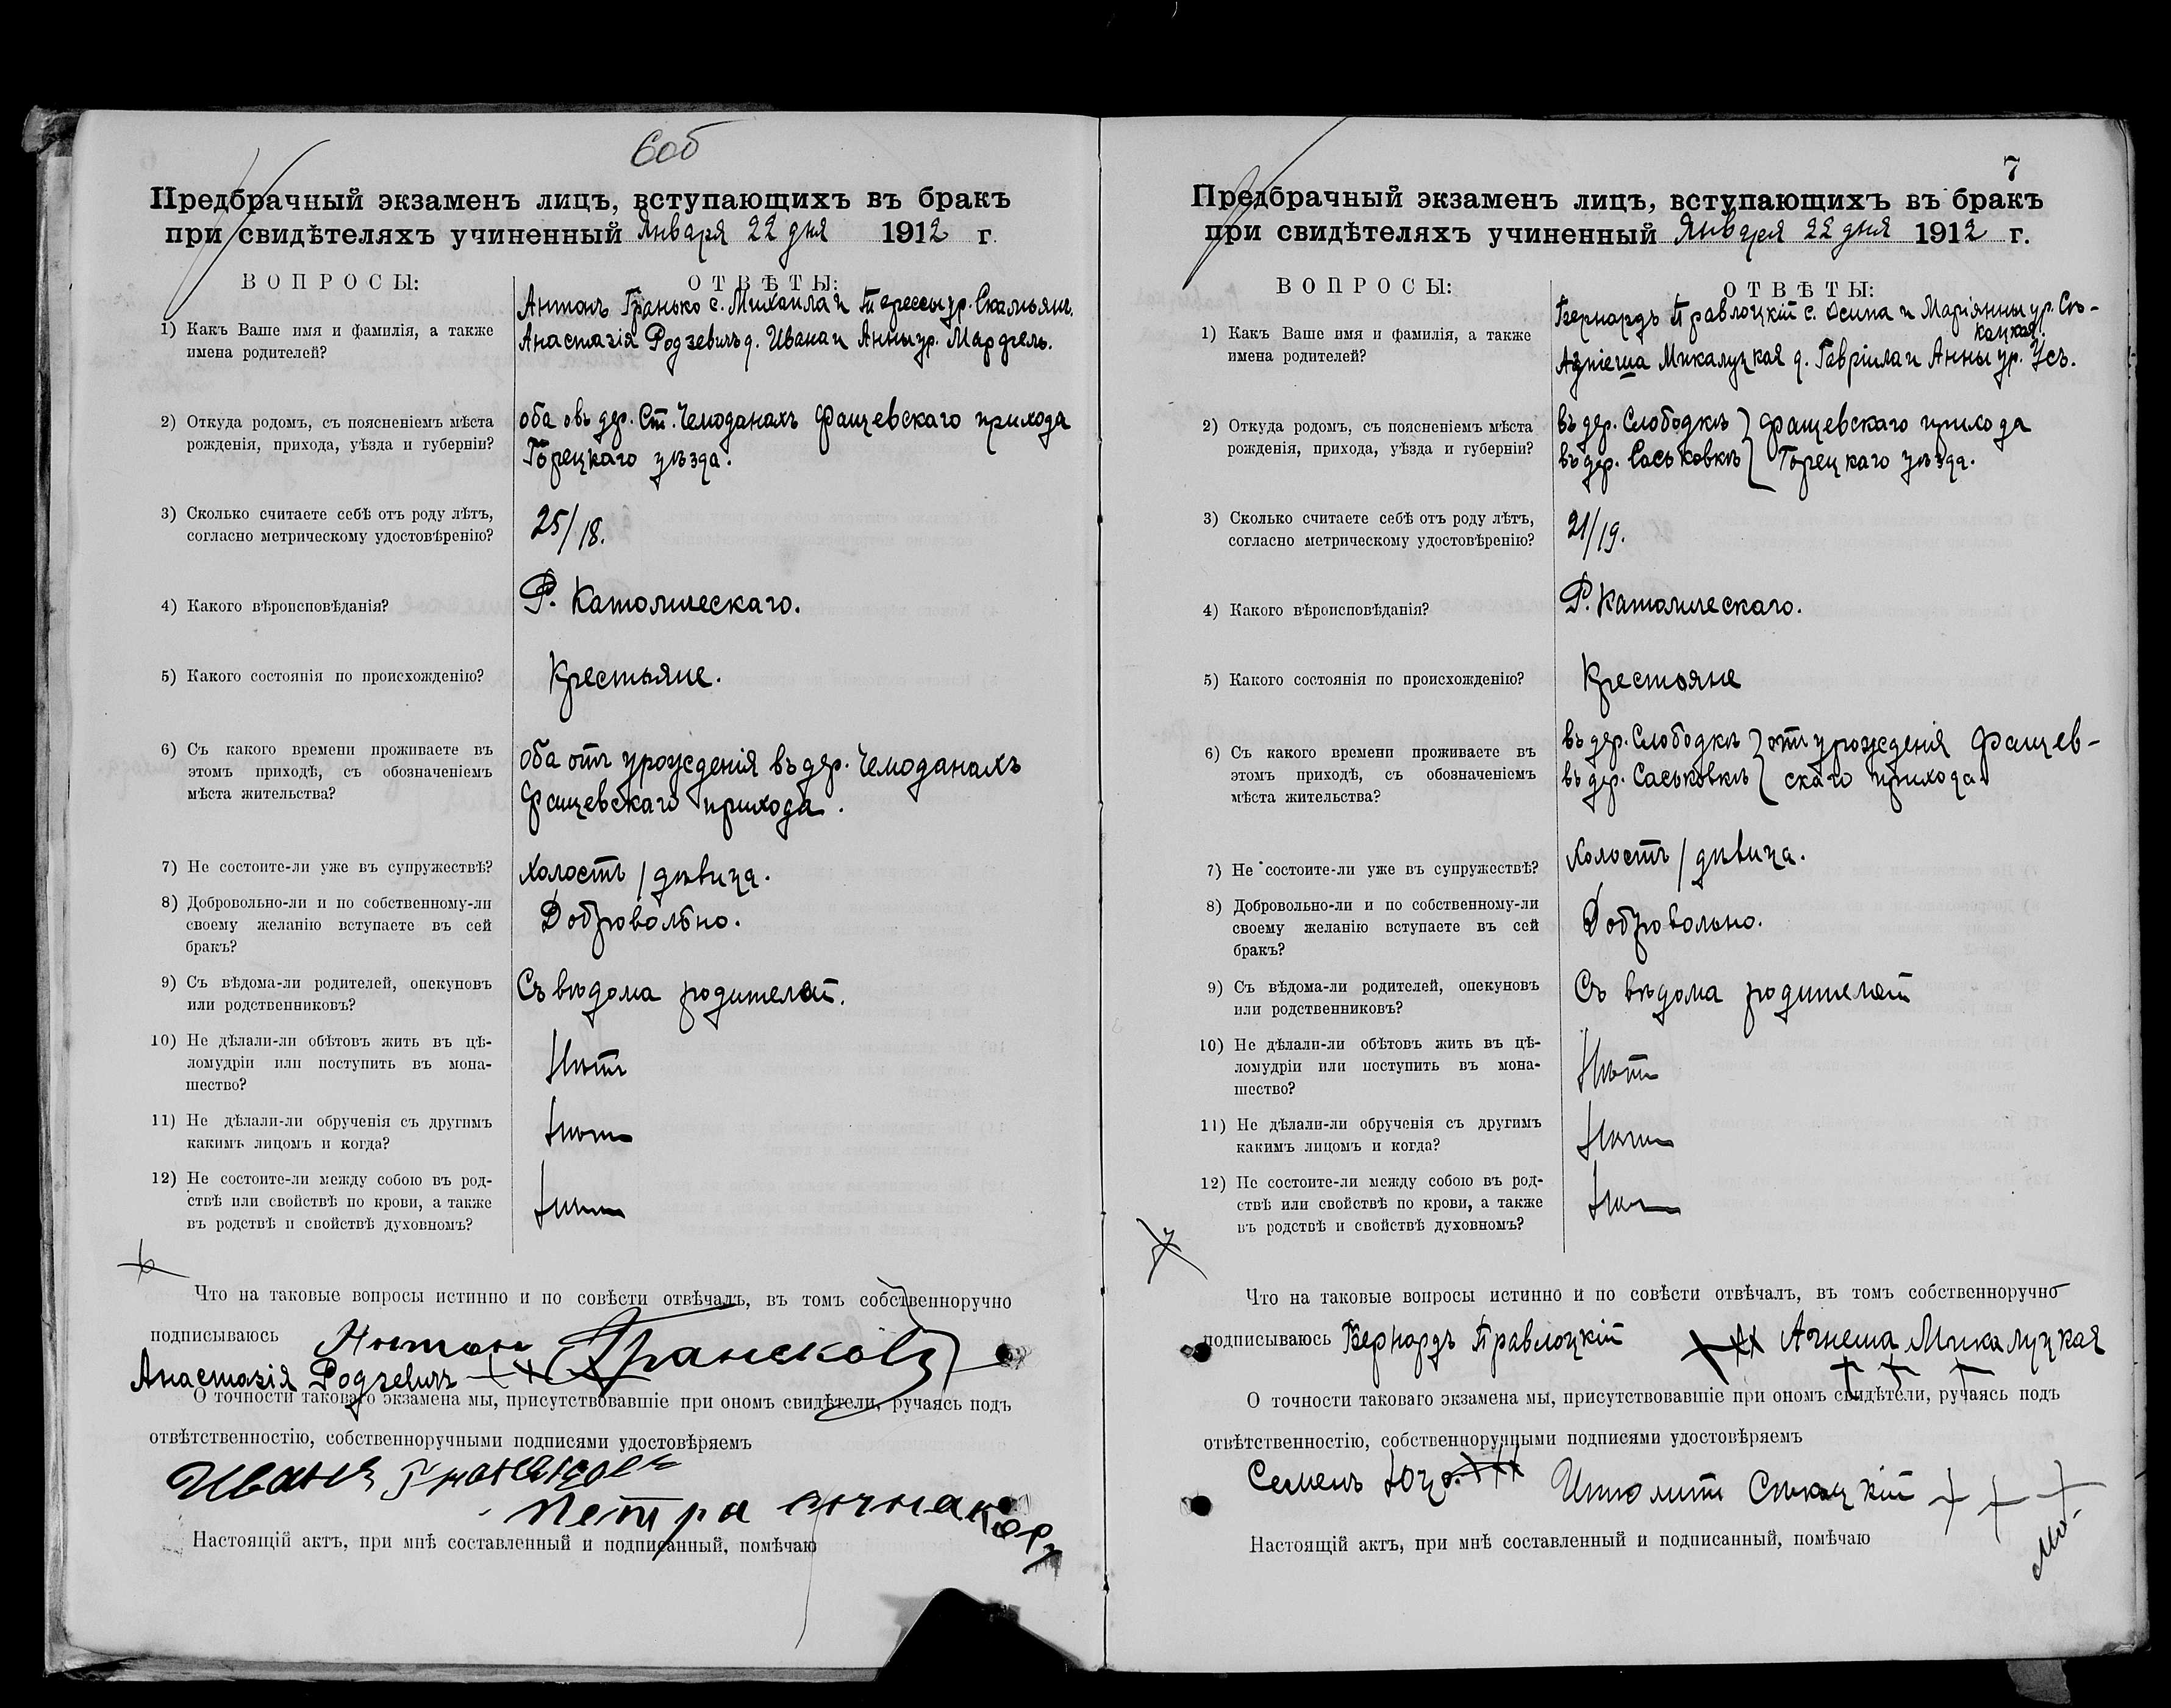 6об
Предбрачный экзаменъ лицъ, вступающихъ въ бракъ
при свидѣтеляхъ учиненный Января 22 дня 1912 г.
ВОПРОСЫ:
ОТВѢТЫ:
1) Какъ Ваше имя и фамилія, а также
имена родителей?
Антонъ Гранько с. Михаила и Терессы ур.
Анастазія Родзевичъ д. Ивана и Анны ур. Мардзель.
2) Откуда родомъ, съ поясненіемъ мѣста
рожденія, прихода, уѣзда и губерніи?
оба въ дер. Ст. Чемоданахъ Фащевскаго прихода
Горецкаго уѣзда.
3) Сколько считаете себѣ отъ роду лѣтъ,
согласно метрическому удостовѣренію?
25/18.
4) Какого вѣроисповѣданія?
Р. Католическаго.
5) Какого состоянія по происхожденію?
Крестьяне.
6) Съ какого времени проживаете въ
этомъ приходѣ, съ обозначеніемъ
мѣста жительства?
оба отъ урожденія въ дер. Чемоданахъ
Фащевскаго прихода.
7) Не состоите-ли уже въ супружествѣ?
Холостъ / дѣвица.
8) Добровольно-ли и по собственному-ли
своему желанію вступаете въ сей
бракъ?
Добровольно.
9) Съ вѣдома-ли родителей, опекуновъ
или родственниковъ?
Съ вѣдома родителей.
10) Не дѣлали-ли обѣтовъ жить въ цѣ-
ломудріи или поступить въ мона-
шество?
Нѣтъ
11) Не дѣлали-ли обрученія съ другимъ
какимъ лицомъ и когда?
Нѣтъ
12) Не состоите-ли между собою въ род-
ствѣ или свойствѣ по крови, а также
въ родствѣ и свойствѣ духовномъ?
Нѣтъ
Что на таковые вопросы истинно и по совѣсти отвѣчалъ, въ томъ собственноручно
подписываюсь Антонъ Гранековъ
Анастазія Родзевичъ +++
О точности таковаго экзамена мы, присутствовавшіе при ономъ свидѣтели, ручаясь подъ
отвѣтственностію, собственноручными подписями удостовѣряемъ
Иванъ
Петра
Настоящій актъ, при мнѣ составленный и подписанный, помѣчаю
7
Предбрачный экзаменъ лицъ, вступающихъ въ бракъ
при свидѣтеляхъ учиненный Января 22 дня 1912 г.
ВОПРОСЫ:
ОТВѢТЫ:
1) Какъ Ваше имя и фамилія, а также
имена родителей?
Бернардъ Правлоцкій с. Осипа и Маріянны ур. Сѣ-
кацкая.
Агніеша Микалуцкая д. Гавріила и Анны ур. Усъ.
2) Откуда родомъ, съ поясненіемъ мѣста
рожденія, прихода, уѣзда и губерніи?
въ дер. Слободкѣ } Фащевскаго прихода
въ дер. Саськовкѣ } Горецкаго уѣзда.
3) Сколько считаете себѣ отъ роду лѣтъ,
согласно метрическому удостовѣренію?
21/19.
4) Какого вѣроисповѣданія?
Р. Католическаго.
5) Какого состоянія по происхожденію?
Крестьяне
6) Съ какого времени проживаете въ
этомъ приходѣ, съ обозначеніемъ
мѣста жительства?
въ дер. Слободкѣ } отъ урожденія Фащев-
въ дер. Саськовкѣ } скаго прихода
7) Не состоите-ли уже въ супружествѣ?
Холостъ / дѣвица.
8) Добровольно-ли и по собственному-ли
своему желанію вступаете въ сей
бракъ?
Добровольно.
9) Съ вѣдома-ли родителей, опекуновъ
или родственниковъ?
Съ вѣдома родителей
10) Не дѣлали-ли обѣтовъ жить въ цѣ-
ломудріи или поступить въ мона-
шество?
Нѣтъ
11) Не дѣлали-ли обрученія съ другимъ
какимъ лицомъ и когда?
Нѣтъ
12) Не состоите-ли между собою въ род-
ствѣ или свойствѣ по крови, а также
въ родствѣ и свойствѣ духовномъ?
Нѣтъ
7
Что на таковые вопросы истинно и по совѣсти отвѣчалъ, въ томъ собственноручно
подписываюсь Бернардъ Правлоцкій +++ Агнеша Микалуцкая
+ + +
О точности таковаго экзамена мы, присутствовавшіе при ономъ свидѣтели, ручаясь подъ
отвѣтственностію, собственноручными подписями удостовѣряемъ
Семенъ +++ Ипполитъ Сѣкацкій + + +
Настоящій актъ, при мнѣ составленный и подписанный, помѣчаю